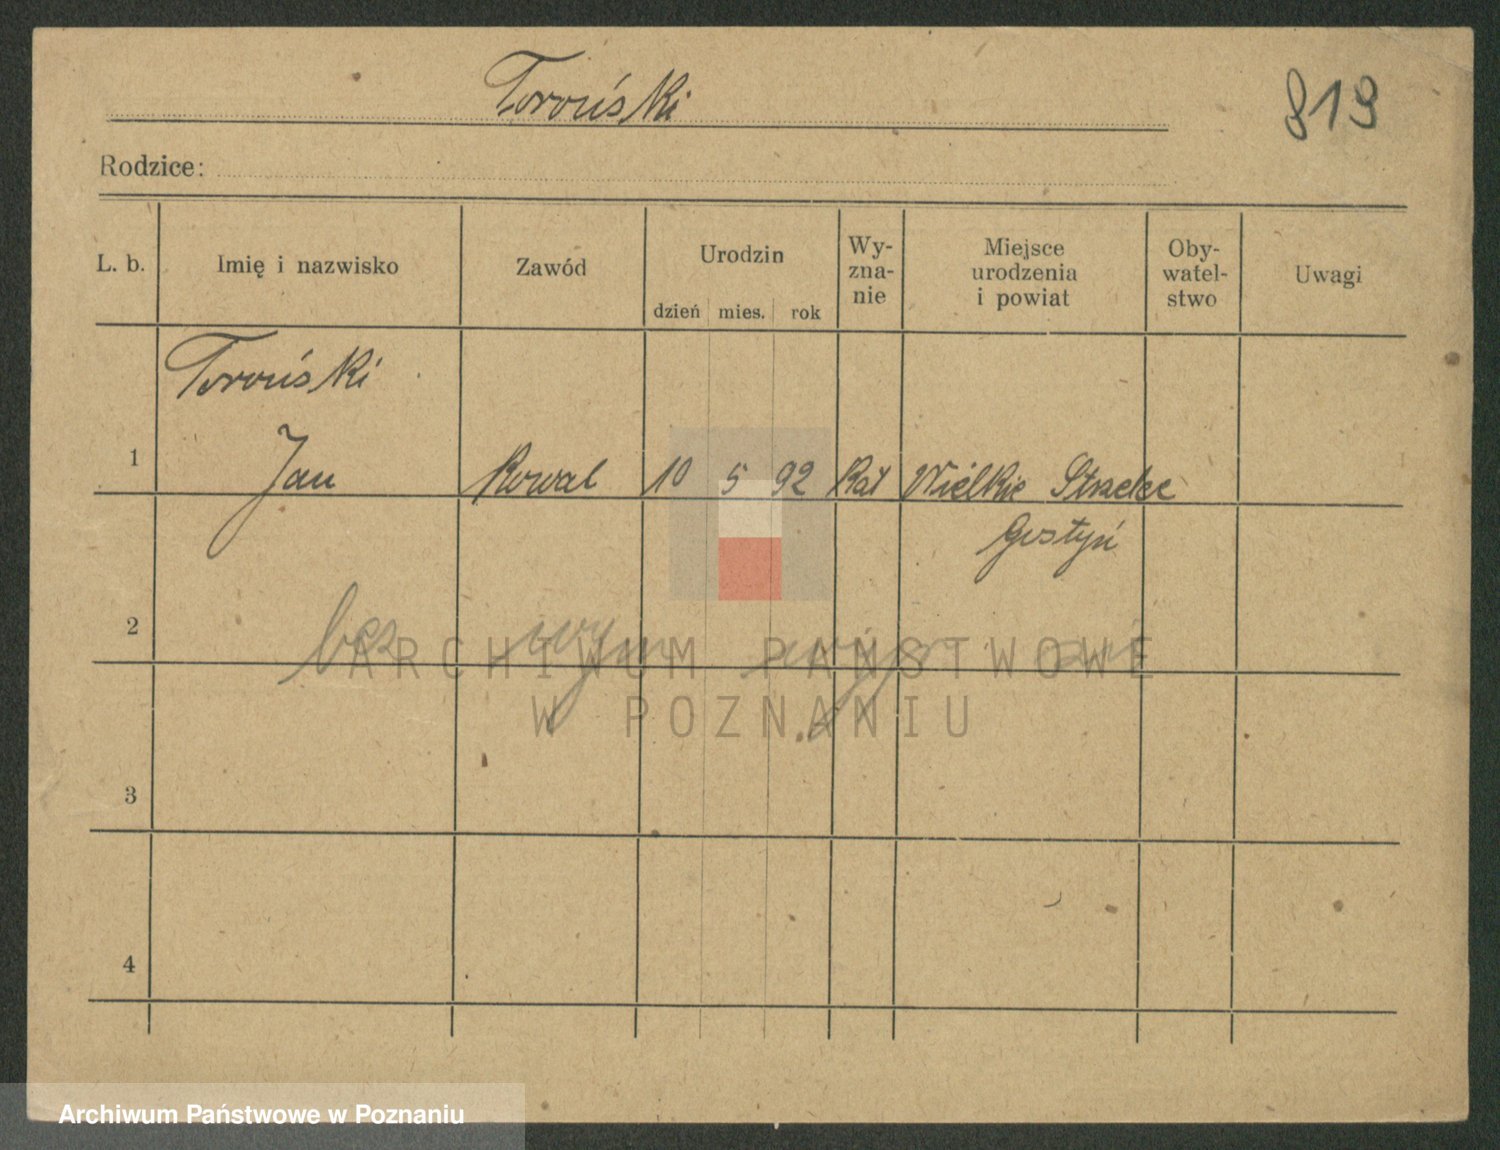 Toroński
819
Rodzice:
L. b. Imię i nazwisko Zawód Urodzin dzień mies. rok Wy-zna-nie Miejsce urodzenia i powiat Oby-watel-stwo Uwagi
Toroński
1 Jan Kowal 10 5 92 Kat Wielkie Strzelce
Gostyń
2 bez
ARCHIWUM PAŃSTWOWE
W POZNANIU
3
4
Archiwum Państwowe w Poznaniu